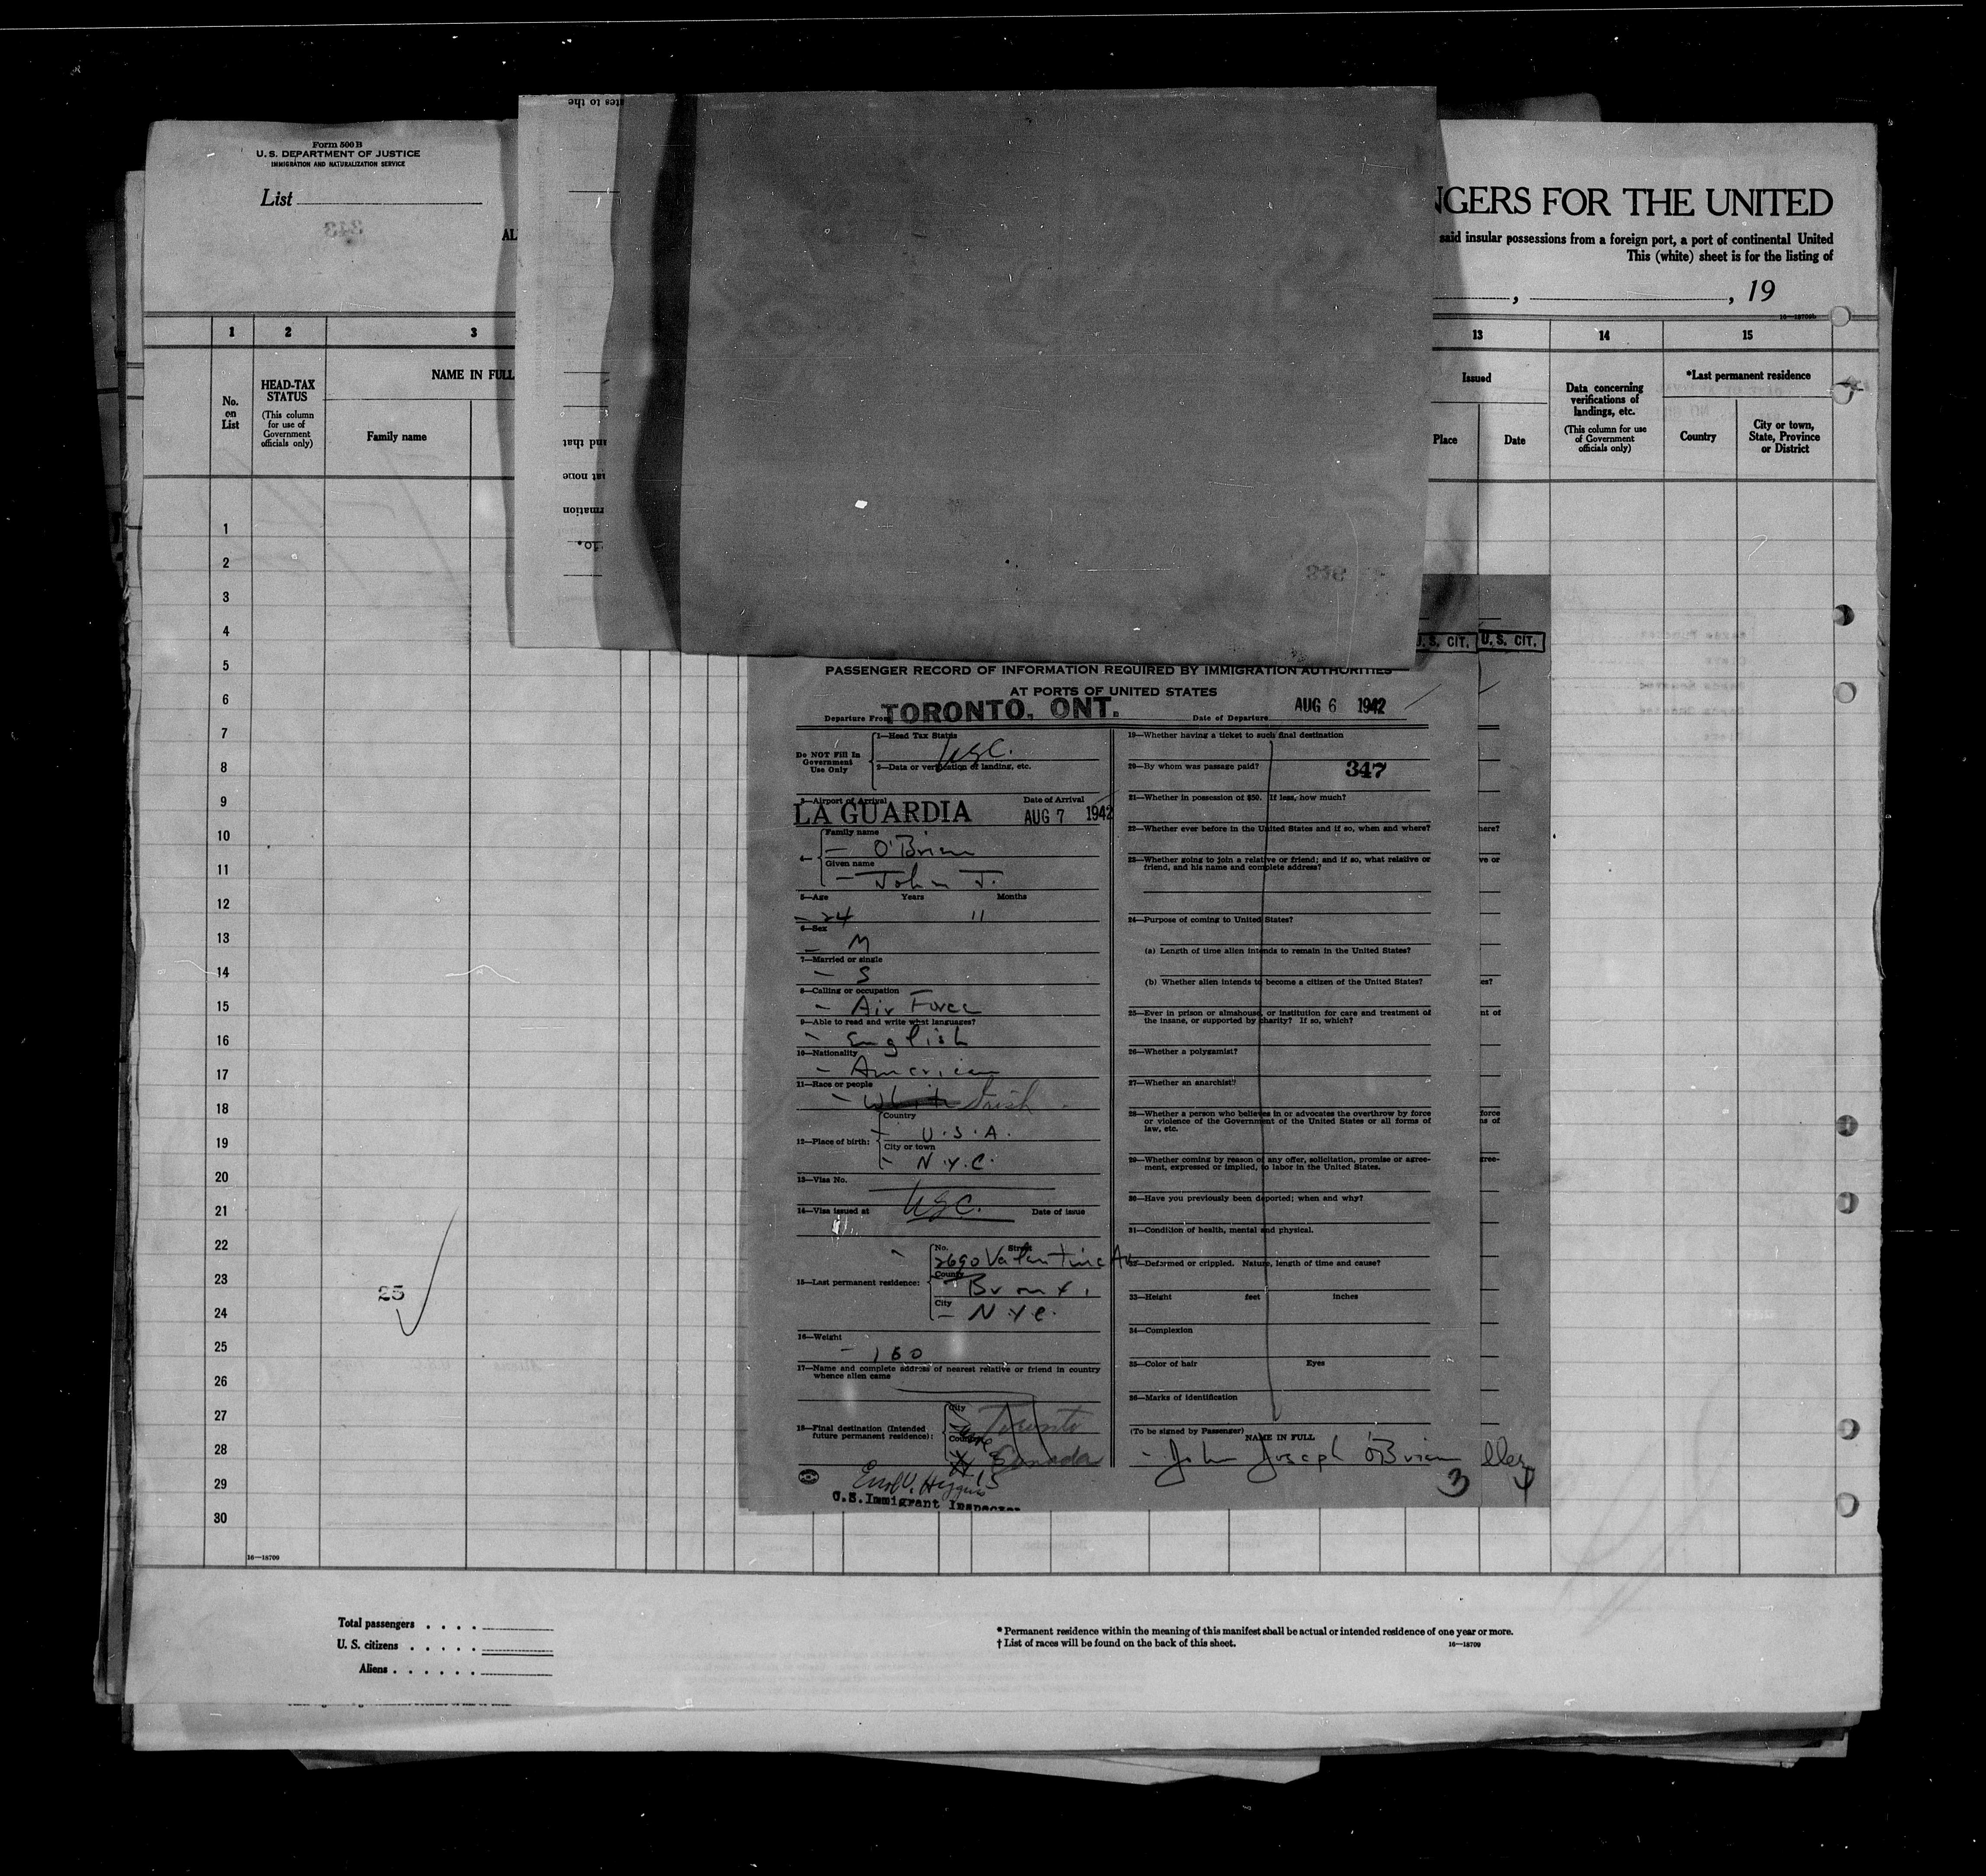 Form 500 B
U. S. DEPARTMENT OF JUSTICE
IMMIGRATION AND NATURALIZATION SERVICE
List
343
AL
ates to the
and that
at none
rmation
NGERS FOR THE UNITED
said insular possessions from a foreign port, a port of continental United
This (white) sheet is for the listing of
, , 19
1 2 3 13 14 15
No. on List
HEAD-TAX STATUS
(This column for use of Government officials only)
NAME IN FULL
Family name
Issued
Place
Date
Data concerning verifications of landings, etc.
(This column for use of Government officials only)
*Last permanent residence
Country
City or town, State, Province or District
1
2
3
4
5
6
7
8
9
10
11
12
13
14
15
16
17
18
19
20
21
22
23
24
25
26
27
28
29
30
25
16—18709
U. S. CIT. U. S. CIT.
PASSENGER RECORD OF INFORMATION REQUIRED BY IMMIGRATION AUTHORITIES
AT PORTS OF UNITED STATES
Departure From TORONTO, ONT. Date of Departure AUG 6 1942
Do NOT Fill In Government Use Only
1—Head Tax Status
USC.
2—Data or verification of landing, etc.
3—Airport of Arrival Date of Arrival
LA GUARDIA AUG 7 1942
4—
Family name
— O'Brien
Given name
— John J.
5—Age Years Months
— 24 11
6—Sex
— M
7—Married or single
— S
8—Calling or occupation
— Air Force
9—Able to read and write what languages?
— English
10—Nationality
— American
11—Race or people
— White Irish
12—Place of birth:
Country
— U.S.A.
City or town
— N.Y.C.
13—Visa No.
USC.
14—Visa issued at Date of issue
15—Last permanent residence:
No. Street
2690 Valentine Av
County
— Bronx,
City
— N.Y.C.
16—Weight
— 160
17—Name and complete address of nearest relative or friend in country
whence alien came
18—Final destination (Intended
future permanent residence):
City
Toronto
Country
Canada
U.S. Immigrant Inspector
19—Whether having a ticket to such final destination
20—By whom was passage paid? 347
21—Whether in possession of $50. If less, how much?
22—Whether ever before in the United States and if so, when and where?
23—Whether going to join a relative or friend; and if so, what relative or
friend, and his name and complete address?
24—Purpose of coming to United States?
(a) Length of time alien intends to remain in the United States?
(b) Whether alien intends to become a citizen of the United States?
25—Ever in prison or almshouse, or institution for care and treatment of
the insane, or supported by charity? If so, which?
26—Whether a polygamist?
27—Whether an anarchist?
28—Whether a person who believes in or advocates the overthrow by force
or violence of the Government of the United States or all forms of
law, etc.
29—Whether coming by reason of any offer, solicitation, promise or agree-
ment, expressed or implied, to labor in the United States.
30—Have you previously been deported; when and why?
31—Condition of health, mental and physical.
32—Deformed or crippled. Nature, length of time and cause?
33—Height feet inches
34—Complexion
35—Color of hair Eyes
36—Marks of identification
(To be signed by Passenger)
NAME IN FULL
— John Joseph O'Brien
3
4
here?
ve or
es?
nt of
force
ns of
gree-
Total passengers . . . .
U. S. citizens . . . . .
Aliens . . . . . .
* Permanent residence within the meaning of this manifest shall be actual or intended residence of one year or more.
† List of races will be found on the back of this sheet. 16—18709